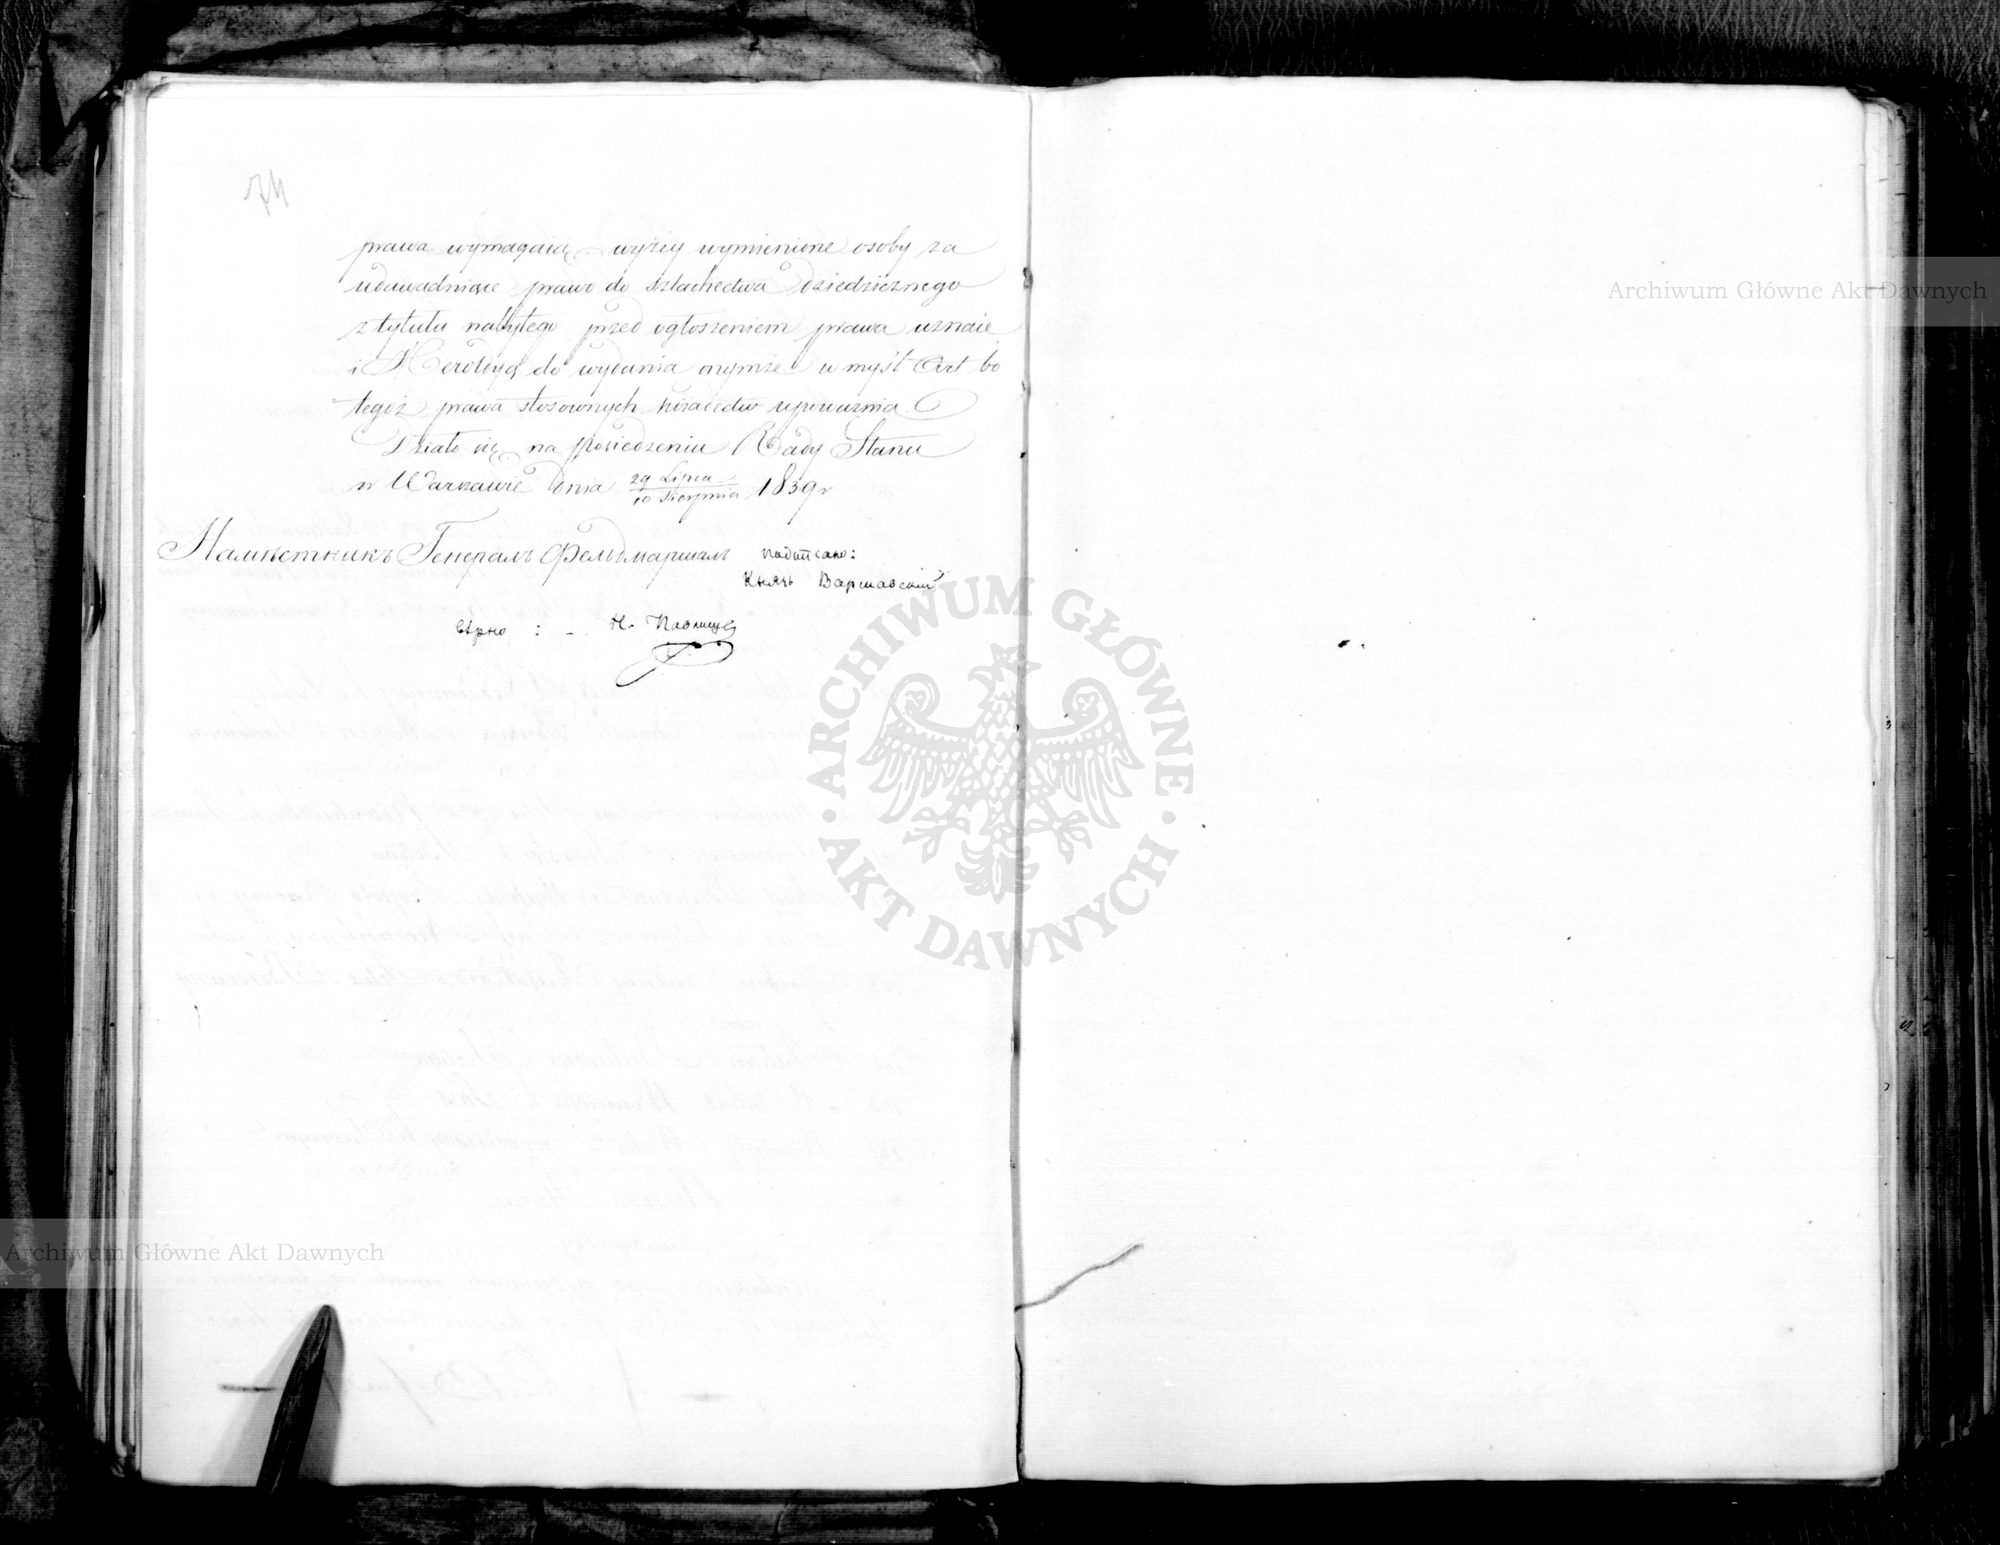 74
prawa wymagaią wyżey wymienione osoby za
udowadniaiące prawo do szlachectwa dziedzicznego
z tytułu nabytego przed ogłoszeniem prawa uznaie
i Heroldyą do wydania onymże w myśl Art 60
tegoż prawa stosownych świadectw upoważnia.
Działo się na posiedzeniu Rady Stanu
w Warszawie dnia 29 Lipca / 10 Sierpnia 1839 r
Намѣстникъ Генералъ Фельдмаршалъ подписано:
Князь Варшавскій
вѣрно : - Н. Павлищев
Archiwum Główne Akt Dawnych
ARCHIWUM GŁÓWNE AKT DAWNYCH
Archiwum Główne Akt Dawnych